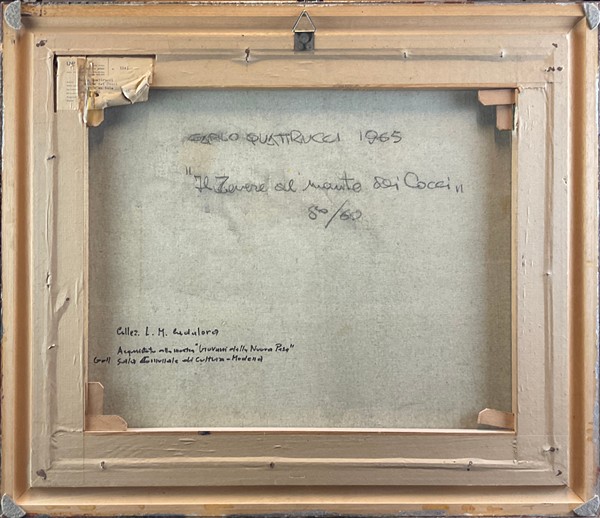 CARLO QUATTRUCCI 1965
"Il Tevere al monte dei Cocci"
80/60
Collez. L. M.
Acquistato alla mostra "Giovani della Nuova Pese"
Gall Sala Comunale di Cultura - Modena